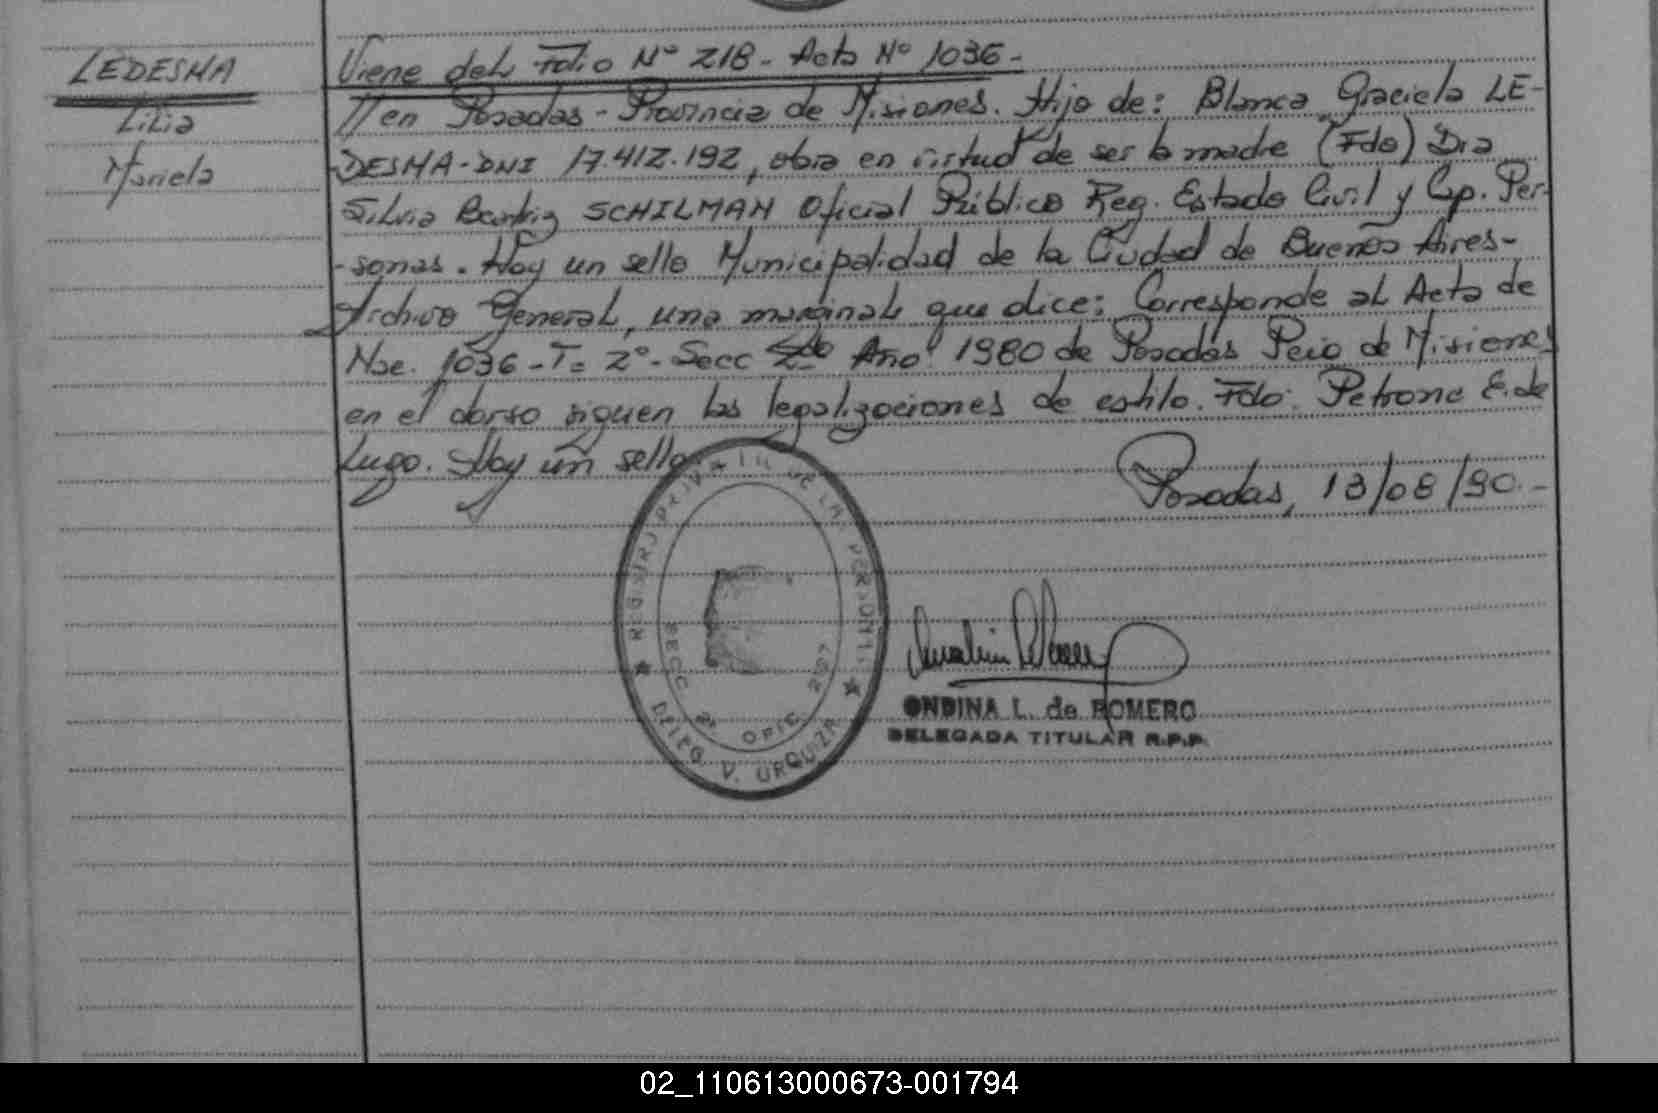 LEDESMA
Lilia
Mariela
Viene del Folio Nº 218 - Acta Nº 1036 -
// en Posadas - Provincia de Misiones. Hija de: Blanca Graciela LE-
DESMA - DNI 17.412.192, obra en virtud de ser la madre (Fdo) Dra
Silvia Beatriz SCHILMAN Oficial Público Reg. Estado Civil y Cap. Per-
-sonas. Hay un sello Municipalidad de la Ciudad de Buenos Aires-
Archivo General, una marginal que dice: Corresponde al Acta de
Nac. 1036 - T= 2º - Secc 2da Año 1980 de Posadas Pcia de Misiones
en el dorso siguen las legalizaciones de estilo. Fdo: Petrona E. de
Lugo. Hay un sello
Posadas, 13/08/90.-
REG. PROV. DE LAS PERSONAS
SECC 2ª OFIC 287
DELEG. V. URQUIZA
ONDINA L. de ROMERO
DELEGADA TITULAR R.P.P.
02_110613000673-001794